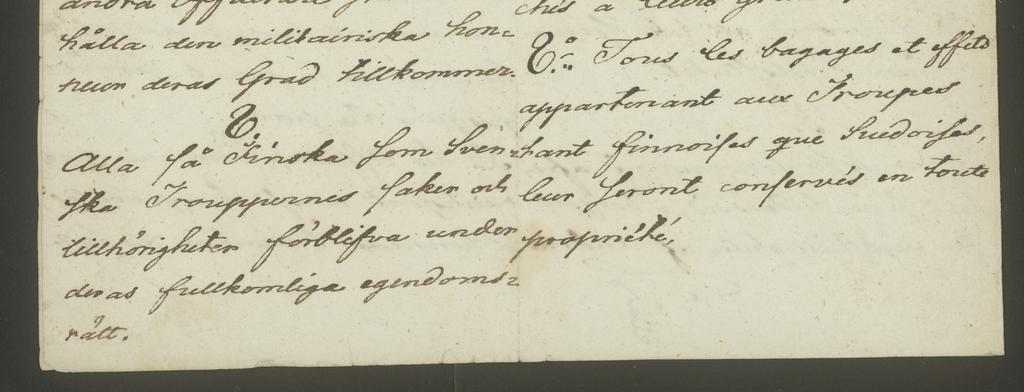 hålla den militairiska hon=
neur deras Grad tillkommer.
6.
Alla så Finska som Sven=
ska Trouppernes saker och
tillhörigheter förblifva under
deras fullkomliga egendoms=
rätt.
6.° Tous les bagages et effets
appartenant aux Troupes
tant finnoises que Suedoises,
leur seront conservés en toute
propriété,